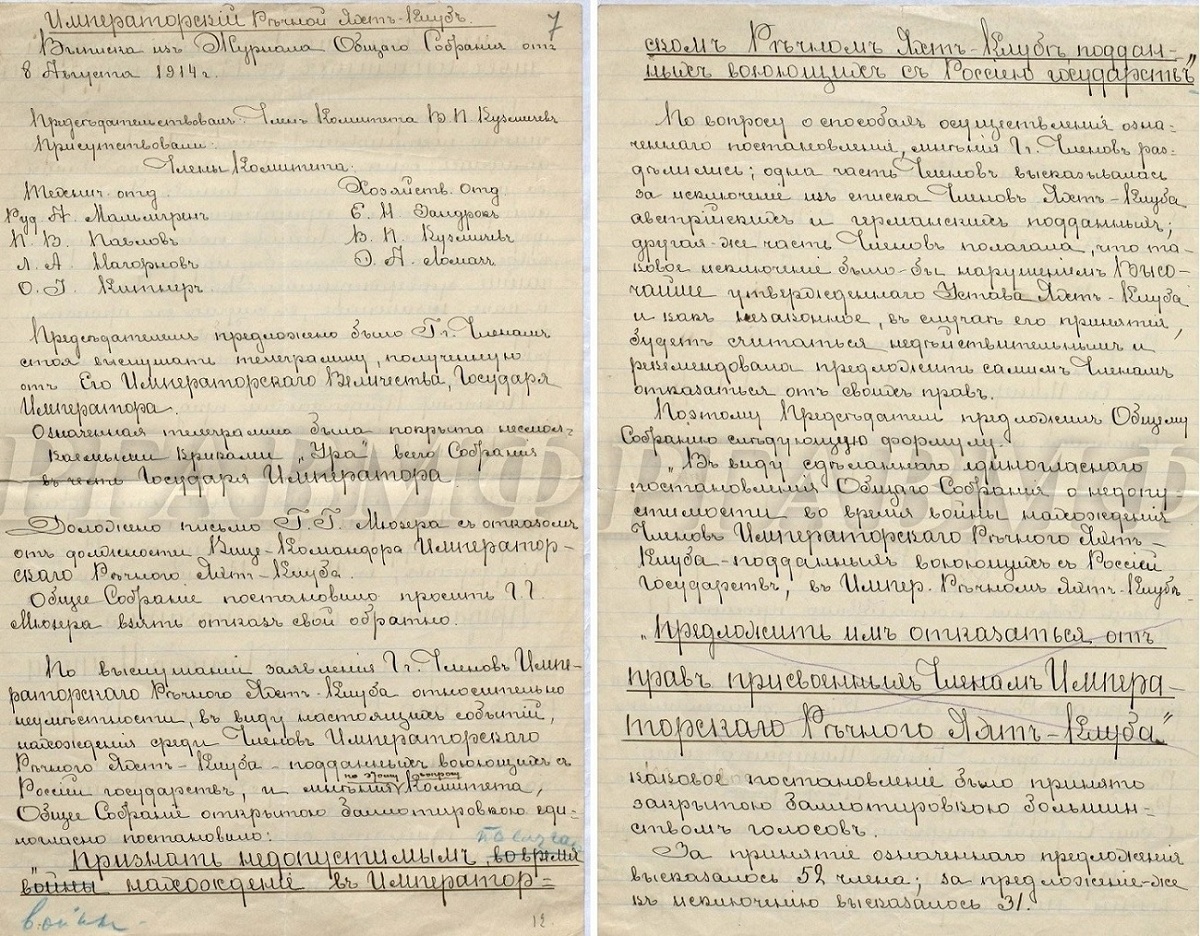 Императорскій Рѣчной Яхтъ-Клубъ. 7
Выписка изъ Журнала Общаго Собранія отъ
8 Августа 1914 г.
Предсѣдательствовалъ: Членъ Комитета В. П. Кузмичевъ
Присутствовали:
Члены Комитета.
Технич. отд. Хозяйств. отд.
Руд. А. Мальмгренъ Е. Н. Зандрокъ
П. В. Павловъ В. П. Кузмичевъ
Л. А. Нагорновъ Э. А. Ломачъ
О. Г. Китнеръ
Предсѣдателемъ предложено было Гг. Членамъ
стоя выслушать телеграмму, полученную
отъ Его Императорскаго Величества, Государя
Императора.
Означенная телеграмма была покрыта несмол-
каемыми криками „Ура“ всего Собранія
въ честь Государя Императора
Доложено письмо Г. Г. Мюзера съ отказомъ
отъ должности Вице-Командора Император-
скаго Рѣчного Яхтъ-Клуба.
Общее Собраніе постановило просить Г. Г.
Мюзера взять отказъ свой обратно.
По выслушаніи заявленія Гг. Членовъ Импе-
раторскаго Рѣчного Яхтъ-Клуба относительно
неумѣстности, въ виду настоящихъ событій,
нахожденія среди Членовъ Императорскаго
Рѣчного Яхтъ-Клуба - подданныхъ воюющихъ съ
по этому вопросу
Россіей государствъ, и мнѣнія Комитета,
Общее Собраніе открытою баллотировкою еди-
ногласно постановило:
по случаю
„Признать недопустимымъ, во время
войны нахожденіе въ Император=
войны 12
скомъ Рѣчномъ Яхтъ-Клубѣ поддан-
ныхъ воюющихъ съ Россіею государствъ“
По вопросу о способахъ осуществленія озна-
ченнаго постановленія, мнѣнія Гг. Членовъ раз-
дѣлились; одна часть Членовъ высказывалась
за исключеніе изъ списка Членовъ Яхтъ-Клуба
австрійскихъ и германскихъ подданныхъ;
другая-же часть Членовъ полагала, что та-
ковое исключеніе было-бы нарушеніемъ Высо-
чайше утвержденнаго Устава Яхтъ-Клуба
и какъ незаконное, въ случаѣ его принятія,
будетъ считаться недѣйствительнымъ и
рекомендовала предложить самимъ Членамъ
отказаться отъ своихъ правъ.
Поэтому Предсѣдатель предложилъ Общему
Собранію слѣдующую формулу:
„Въ виду сдѣланнаго единогласнаго
постановленія Общаго Собранія о недопу-
стимости во время войны нахожденія
Членовъ Императорскаго Рѣчного Яхтъ-
Клуба-подданныхъ воюющихъ съ Россіей
Государствъ, въ Импер. Рѣчномъ Яхтъ-Клубѣ-
„предложить имъ отказаться отъ
правъ присвоенныхъ Членамъ Импера-
торскаго Рѣчного Яхтъ-Клуба“
каковое постановленіе было принято
закрытою баллотировкою большин-
ствомъ голосовъ.
За принятіе означеннаго предложенія
высказалось 52 члена; за предложеніе-же
къ исключенію высказалось 31.
РГАВМФ РГАВМФ